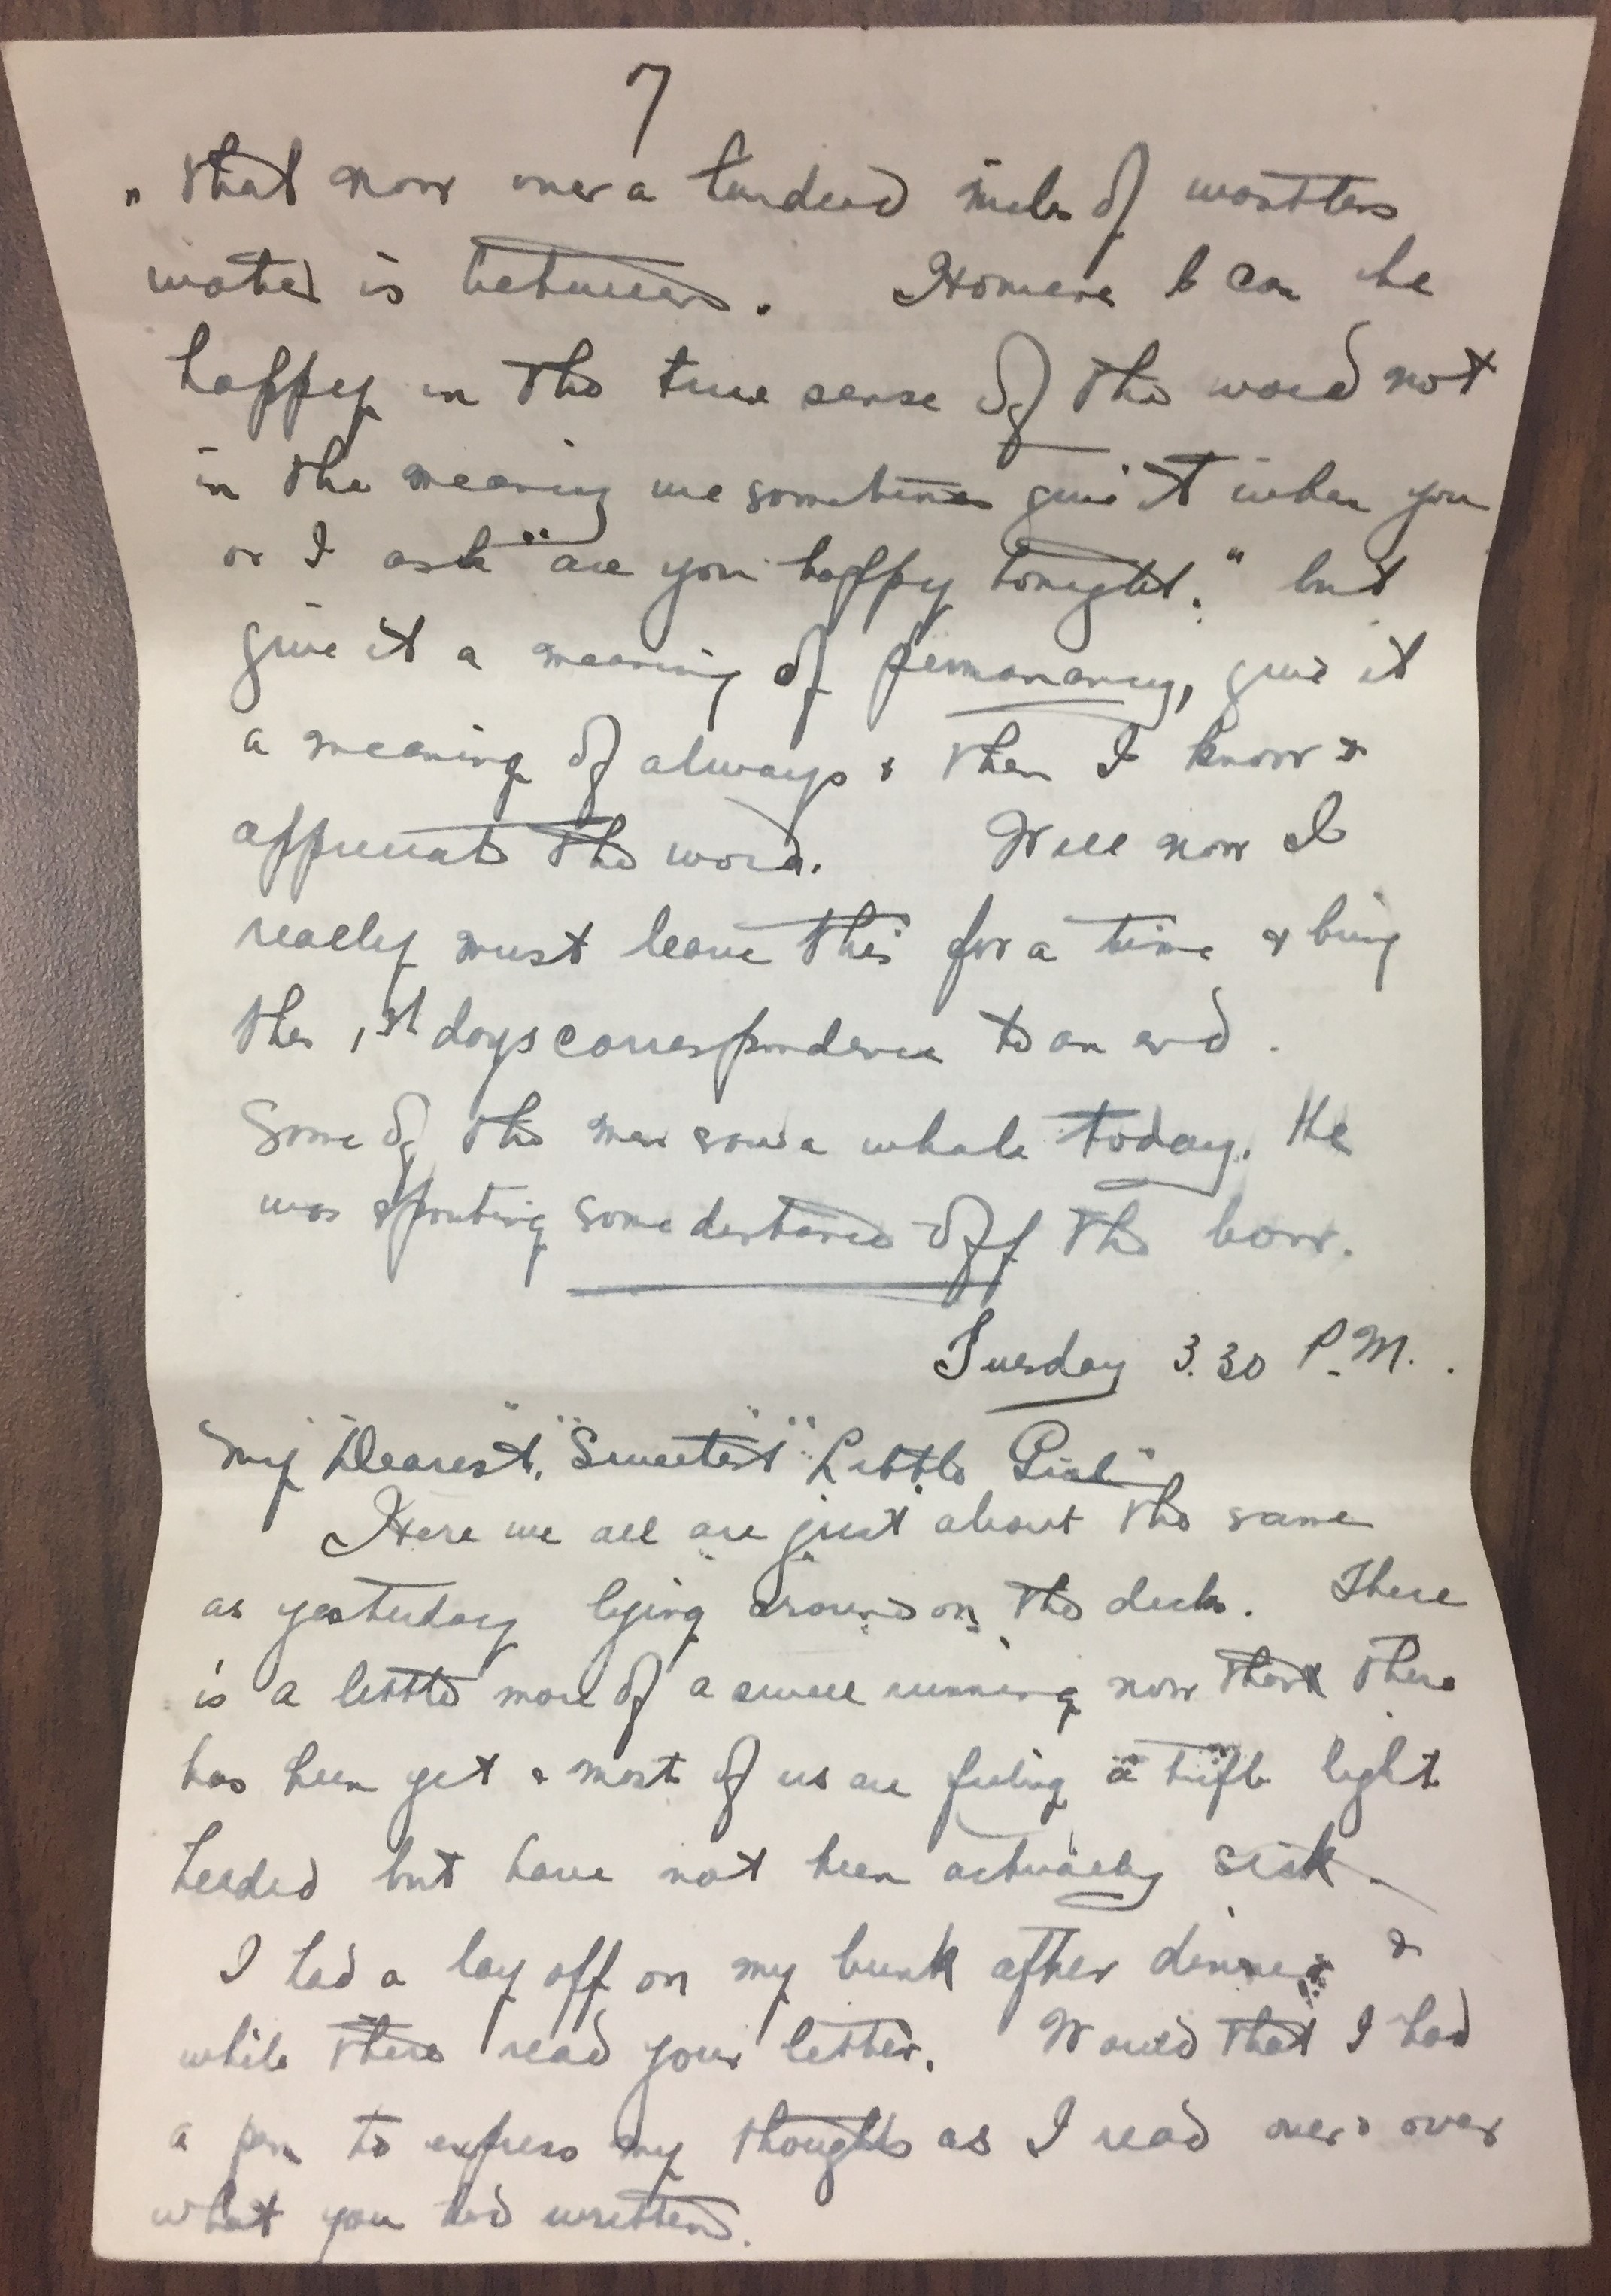 7
" that now over a hundred miles of
water is between. I can be
happy in the true sense of the word not
in the meaning we sometimes give it when you
or I ask "are you happy tonight." but
give it a meaning of permanency, give it
a meaning of always & then I know &
appreciate the word. Well now I
really must leave this for a time & bring
the 1st days correspondence to an end.
Some of the men saw a whale today. He
was spouting some distance off the bow.
Tuesday 3.30 P.M.
My "Dearest," "Sweetest" "Little Girl"
Here we all are just about the same
as yesterday lying around on the deck. There
is a little more of a swell running now than there
has been yet & most of us are feeling a trifle light
headed but have not been actually sick.
I had a lay off on my bunk after dinner &
while there read your letter. Would that I had
a pen to express my thoughts as I read over & over
what you had written.